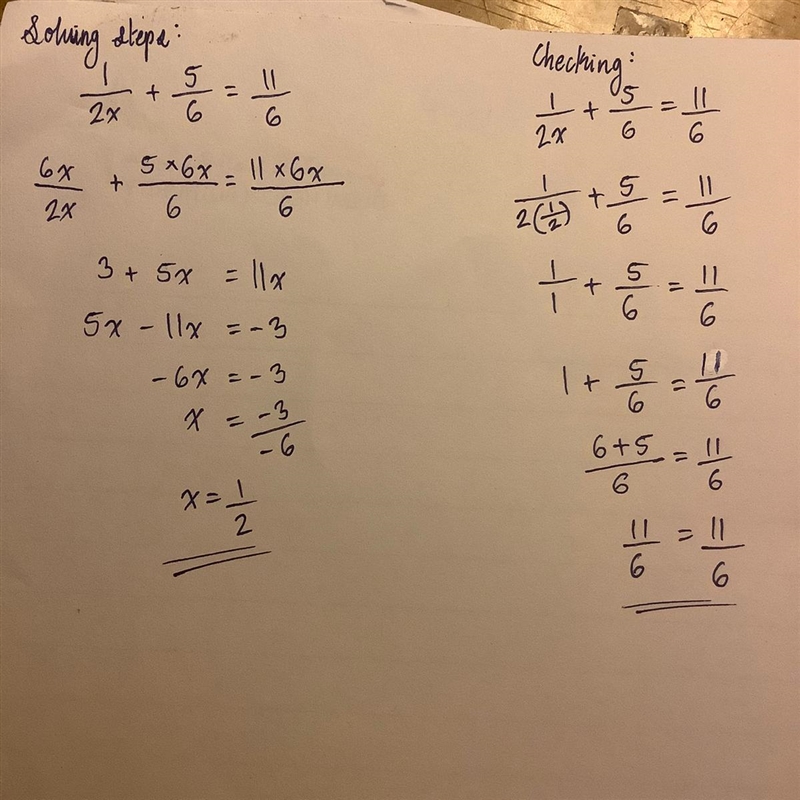 Solving steps:
1/2x + 5/6 = 11/6
6x/2x + 5×6x/6 = 11×6x/6
3 + 5x = 11x
5x - 11x = -3
-6x = -3
x = -3/-6
x = 1/2
Checking:
1/2x + 5/6 = 11/6
1/2(1/2) + 5/6 = 11/6
1/1 + 5/6 = 11/6
1 + 5/6 = 11/6
6+5/6 = 11/6
11/6 = 11/6